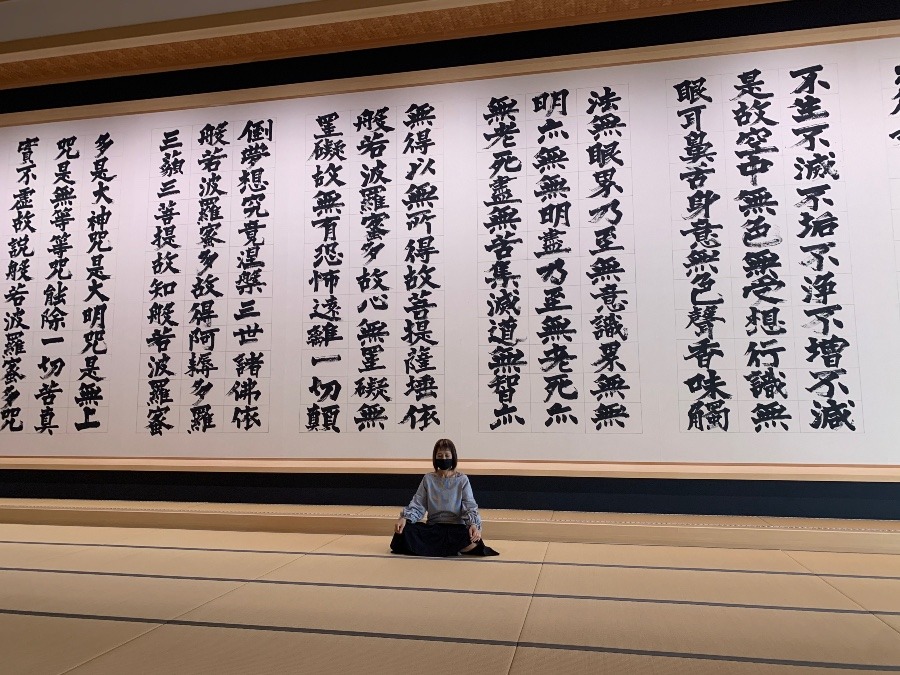 不生不滅不垢不浄不増不減
是故空中無色無受想行識無
眼耳鼻舌身意無色聲香味觸
法無眼界乃至無意識界無無
明亦無無明盡乃至無老死亦
無老死盡無苦集滅道無智亦
無得以無所得故菩提薩埵依
般若波羅蜜多故心無罣礙無
罣礙故無有恐怖遠離一切顛
倒夢想究竟涅槃三世諸佛依
般若波羅蜜多故得阿耨多羅
三藐三菩提故知般若波羅蜜
多是大神咒是大明咒是無上
咒是無等等咒能除一切苦真
實不虛故說般若波羅蜜多咒